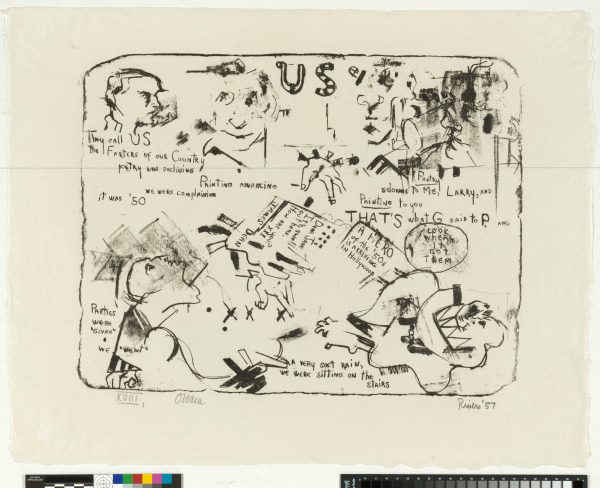 US
They call US
the FARTERS of our Country
poetry was declining
Painting advancing
we were complaining
it was '50
Poetry
belongs to Me, LARRY, AND
Painting to you
THAT'S what G said to P. AND
LOOK
WHERE
IT
GOT
THEM
A HERO
of the '50s
is arriving
in Hollywood
PARTIES
WERE
"GIVEN"
WE "WENT"
A VERY SOFT RAIN,
WE WERE SITTING ON the
STAIRS
XVIII
O'Hara
Rivers '57